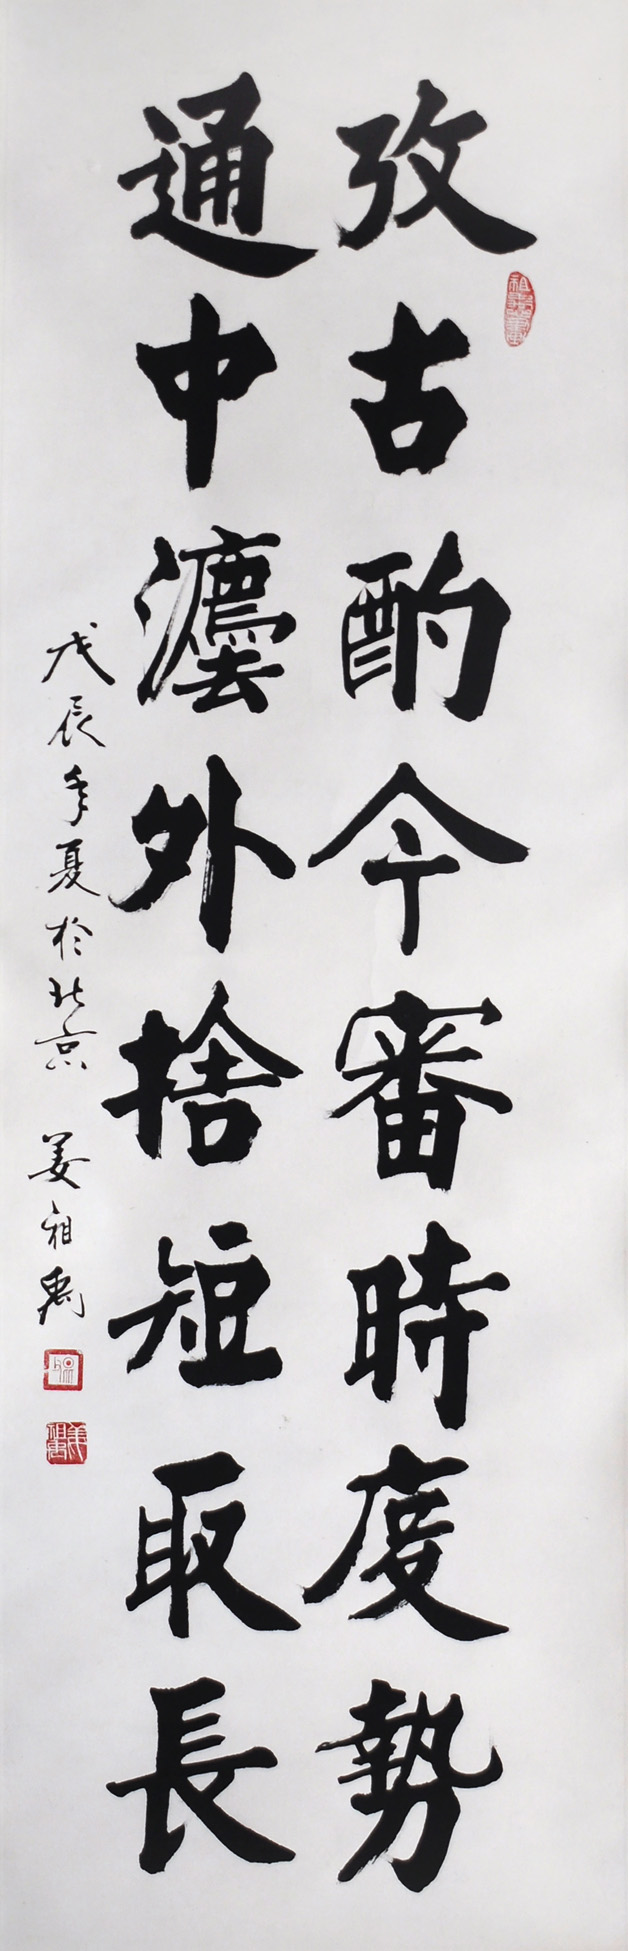 攷古酌今審時度勢
通中灋外捨短取長
戊辰年夏於北京 姜祖禹